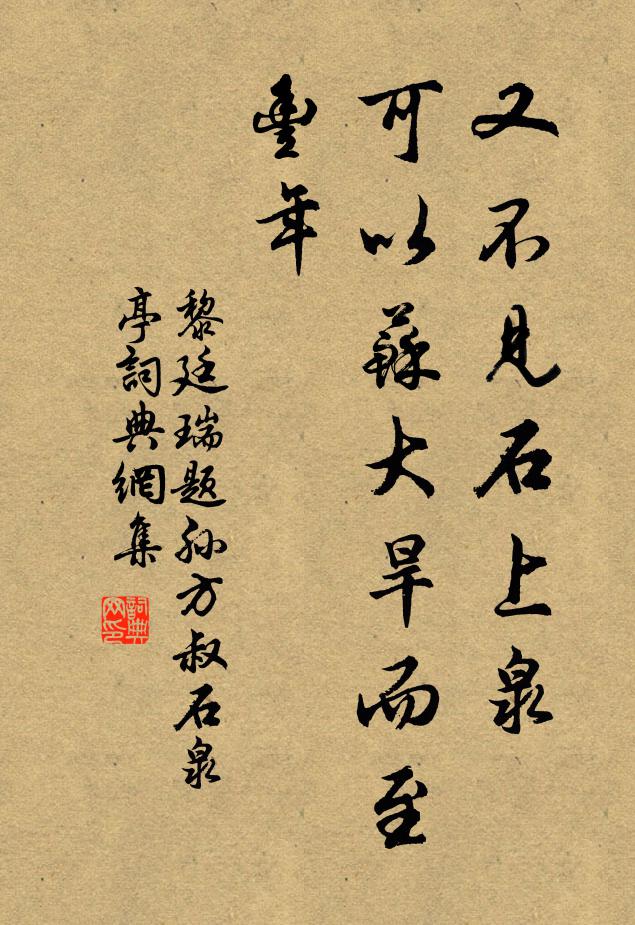 又不見石上泉
可以蘇大旱而至
豐年
黎廷瑞題孙方叔石泉
亭詞典網集
詞典
网印